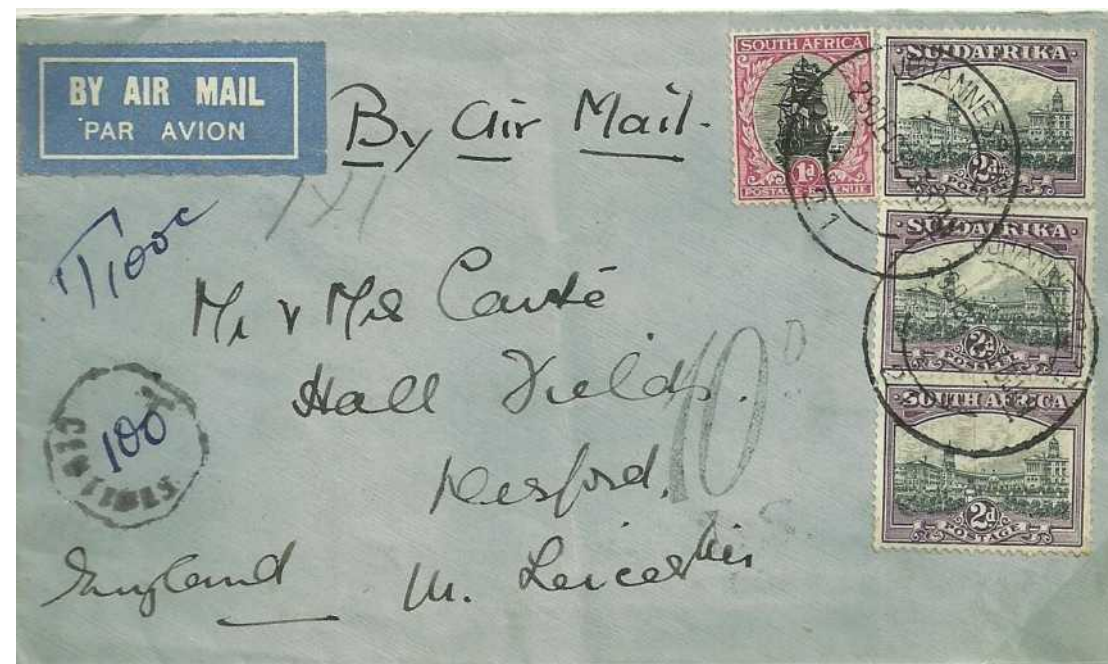 BY AIR MAIL
PAR AVION
By Air Mail.
SOUTH AFRICA
1d
POSTAGE REVENUE
SUIDAFRIKA
2d
POSSEEL
SUIDAFRIKA
2d
POSSEEL
SOUTH AFRICA
2d
POSTAGE
JOHANNESBURG
T100c
Mr & Mrs
Hall Fields.
Desford.
Nr. Leicester
England
T
100
CENTIMES
10D